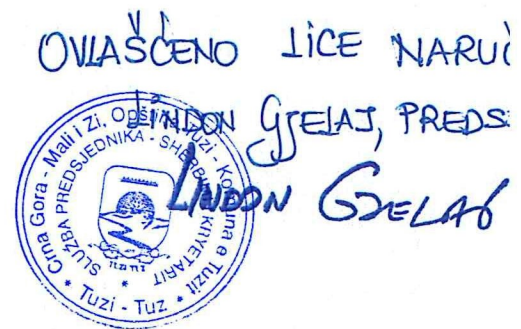 OVLAŠĆENO LICE NARUČ
LINDON GJELAJ, PREDS
LINDON GJELAJ
Crna Gora - Mali i Zi, Opština Tuzi - Komuna e Tuzit
SLUŽBA PREDSJEDNIKA - SHERBIMI I KRYETARIT
Tuzi - Tuz